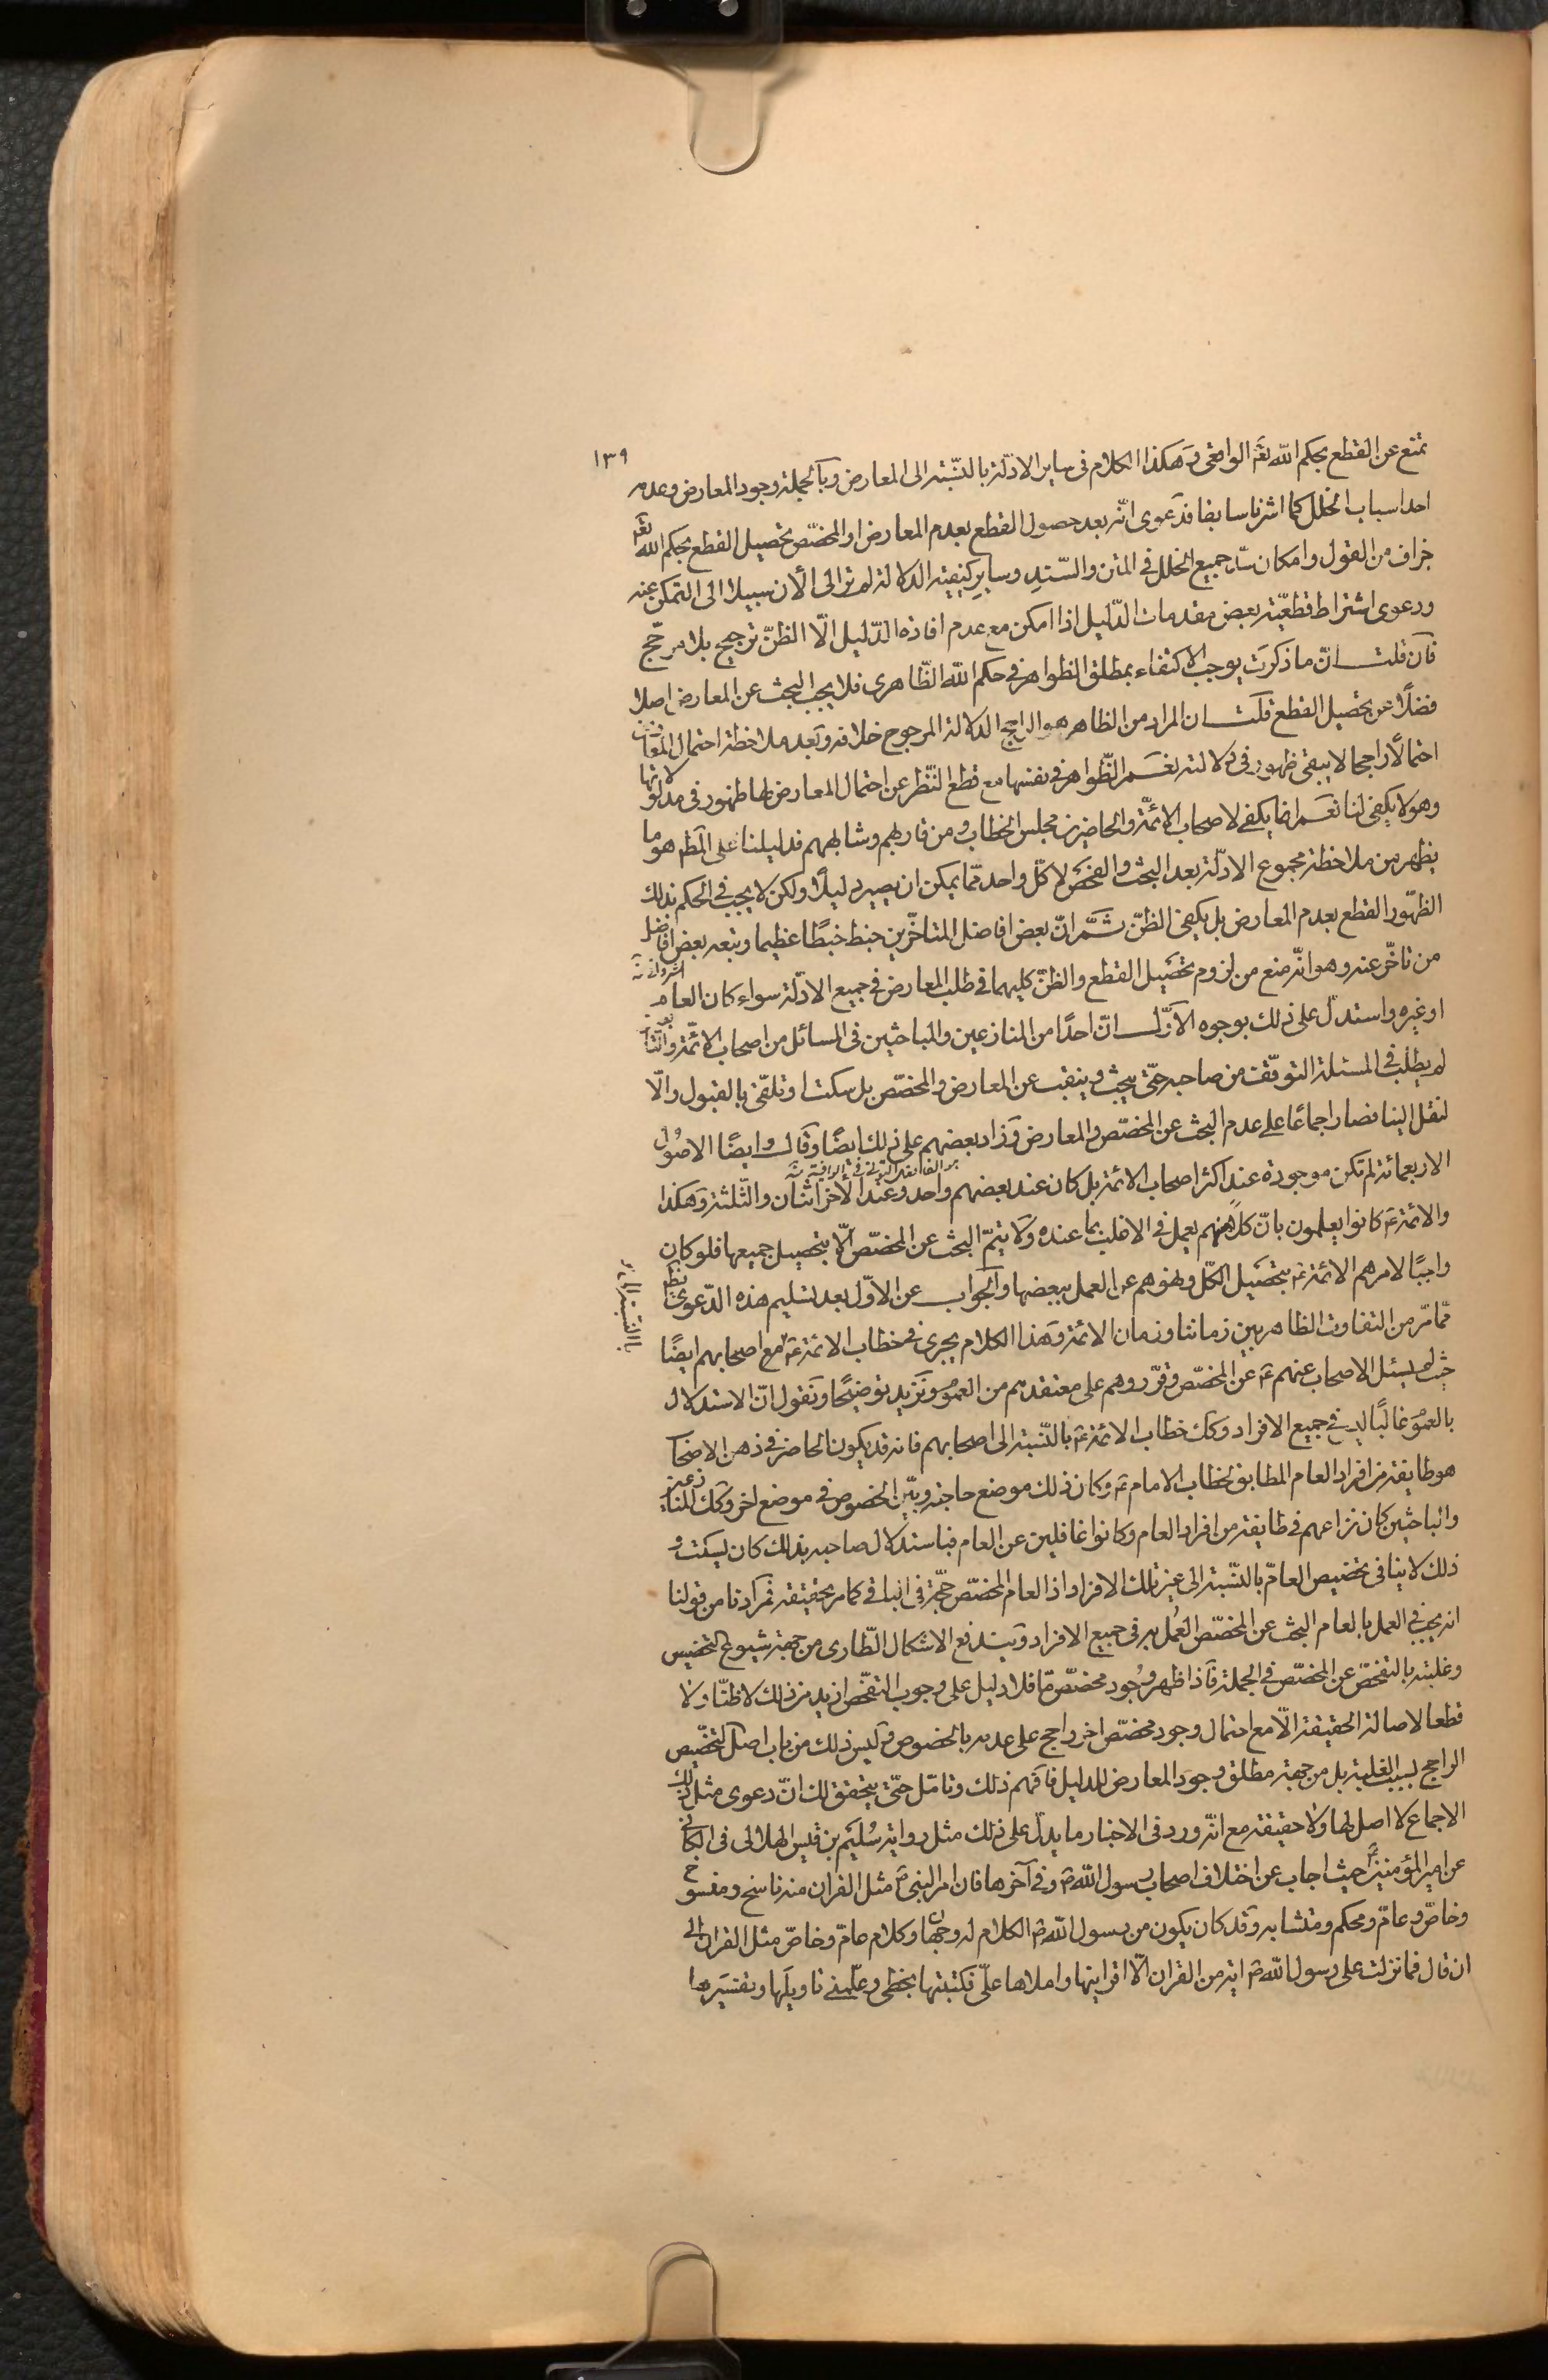 ١٣٩
تمنع عن القطع بحكم الله تعـ الواقعى وهكذا الكلام فى ساير الادلّة بالنّسبة الى المعارض وبالجملة وجود المعارض وعدمه
احد اسباب الخلل كما اشرنا سابقا فدعوى انّه بعد حصول القطع بعدم المعارض او المخصّص تحصيل القطع بحكم الله تعـ
جزاف من القول وامكان سدّ جميع الخلل فى المتن والسّند وساير كيفية الدلالة لم نر الى الأن سبيلا الى التمكن عنه
ودعوى اشتراط قطعيّة بعض مقدمات الدّليل اذا امكن مع عدم افادة الدّليل الّا الظنّ ترجيح بلا مرجّح
فان قلت انّ ما ذكرت يوجب الاكتفاء بمطلق الظواهر فى حكم الله الظّاهرى فلا يجب البحث عن المعارض اصلا
فضلًا عن تحصيل القطع قلت ان المراد من الظاهر هو الراجح الدلالة المرجوح خلافه وبعد ملاحظة احتمال المعارض
احتمالًا راجحا لا يبقى ظهور فى دلالته نعم الظّواهر فى نفسها مع قطع النّظر عن احتمال المعارض لها ظهور فى مدلولاتها
وهو لا يكفى لنا نعم انما يكفى لاصحاب الائمّة والحاضرين مجلس الخطاب ومن قاربهم وشابههم فدليلنا على المط هو ما
يظهر من ملاحظة مجموع الادلّة بعد البحث والفحص لا كلّ واحد ممّا يمكن ان يصير دليلًا ولكن لا يجب فى الحكم بذلك
الظهور القطع بعدم المعارض بل يكفى الظنّ ثمّ انّ بعض افاضل المتاخّرين خبط خبطًا عظيما وتبعه بعض افاضل
من تاخّر عنه وهو انّه منع من لزوم تحصيل القطع والظنّ كليهما فى طلب المعارض فى جميع الادلّة سواء كان العام
او غيره واستدلّ على ذلك بوجوه الاوّل انّ احدًا من المنازعين والمباحثين فى المسائل من اصحاب الائمّة والتابعين
لم يطلب فى المسئلة التوقّف من صاحبه حتّى يبحث وينقب عن المعارض والمخصّص بل سكت او تلقّى بالقبول والّا
لنقل الينا فصار اجماعًا على عدم البحث عن المخصّص والمعارض وزاد بعضهم على ذلك ايضًا وقال وايضًا الاصُول
الاربعمائة لم تكن موجودة عند اكثر اصحاب الائمة بل كان عند بعضهم واحد وعند الأخر اثنان والثّلثة وهكذا
والائمة ع كانوا يعلمون بانّ كلًا منهم يعمل فى الاغلب بما عنده ولا يتمّ البحث عن المخصّص الّا بتحصيل جميعها فلو كان
واجبًا لامرهم الائمة ع بتحصيل الكلّ ونهوهم عن العمل ببعضها والجواب عن الاوّل بعد تسليم هذه الدّعوى يظهر
ممّا مرّ من التفاوت الظاهر بين زماننا وزمان الائمة وهذا الكلام يجرى فى خطاب الائمة ع مع اصحابهم ايضًا
حيث لم يسئل الاصحاب عنهم ع عن المخصّص وقرّروهم على معتقدهم من العموم ونزيد توضيحًا ونقول انّ الاستدلال
بالعموم غالبًا ليس فى جميع الافراد وكك خطاب الائمة ع بالنّسبة الى اصحابهم فانه قد يكون الحاضر فى ذهن الاصحاب
هو طايفة من افراد العام المطابق لخطاب الامام ع وكان ذلك موضع حاجته وبيّن الخصوص فى موضع اخر وكك المنازعين
والباحثين كان نزاعهم فى طايفة من افراد العام وكانوا غافلين عن العام فباستدلال صاحبه بذلك كان يسكت و
ذلك لا ينافى تخصيص العامّ بالنّسبة الى غير تلك الافراد اذ العام المخصّص حجّة فى الباقى كما مر تحقيقه فمرادنا من قولنا
انه يجب فى العمل بالعام البحث عن المخصّص العُمل به فى جميع الافراد ويندفع الاشكال الطّارى من جهة شيوع التخصيص
وغلبته بالتفحّص عن المخصّص فى الجملة فاذا ظهر وجُود مخصّص مّا فلا دليل على وجوب التفحّص ازيد من ذلك لا ظنّا ولا
قطعا لاصالة الحقيقة الّا مع احتمال وجود مخصّص اخر راجح على عدمه بالخصوص وليس ذلك من باب اصل التخصيص
الراجح بسبب الغلبة بل من جهة مطلق وجود المعارض للدليل فافهم ذلك وتامّل حتّى يتحقق لك انّ دعوى مثل ذلك
الاجماع لا اصل لها ولا حقيقة مع انّه ورد فى الاخبار ما يدلّ على ذلك مثل رواية سُليم بن قيس الهلالى فى الكافى
عن امير المؤمنين ع حيث اجاب عن اختلاف اصحاب رسول الله ص وفى آخرها فان امر النبى ص مثل القران منه ناسخ ومنسوخ
وخاصّ وعامّ ومحكم ومتشابه وقد كان يكون من رسول الله ص الكلام له وجهان وكلام عامّ وخاصّ مثل القران الى
ان قال فما نزلت على رسول الله ص اية من القران الّا اقرانيها واملاها علىّ فكتبتها بخطى وعلّمنى تاويلَها وتفسيَرها